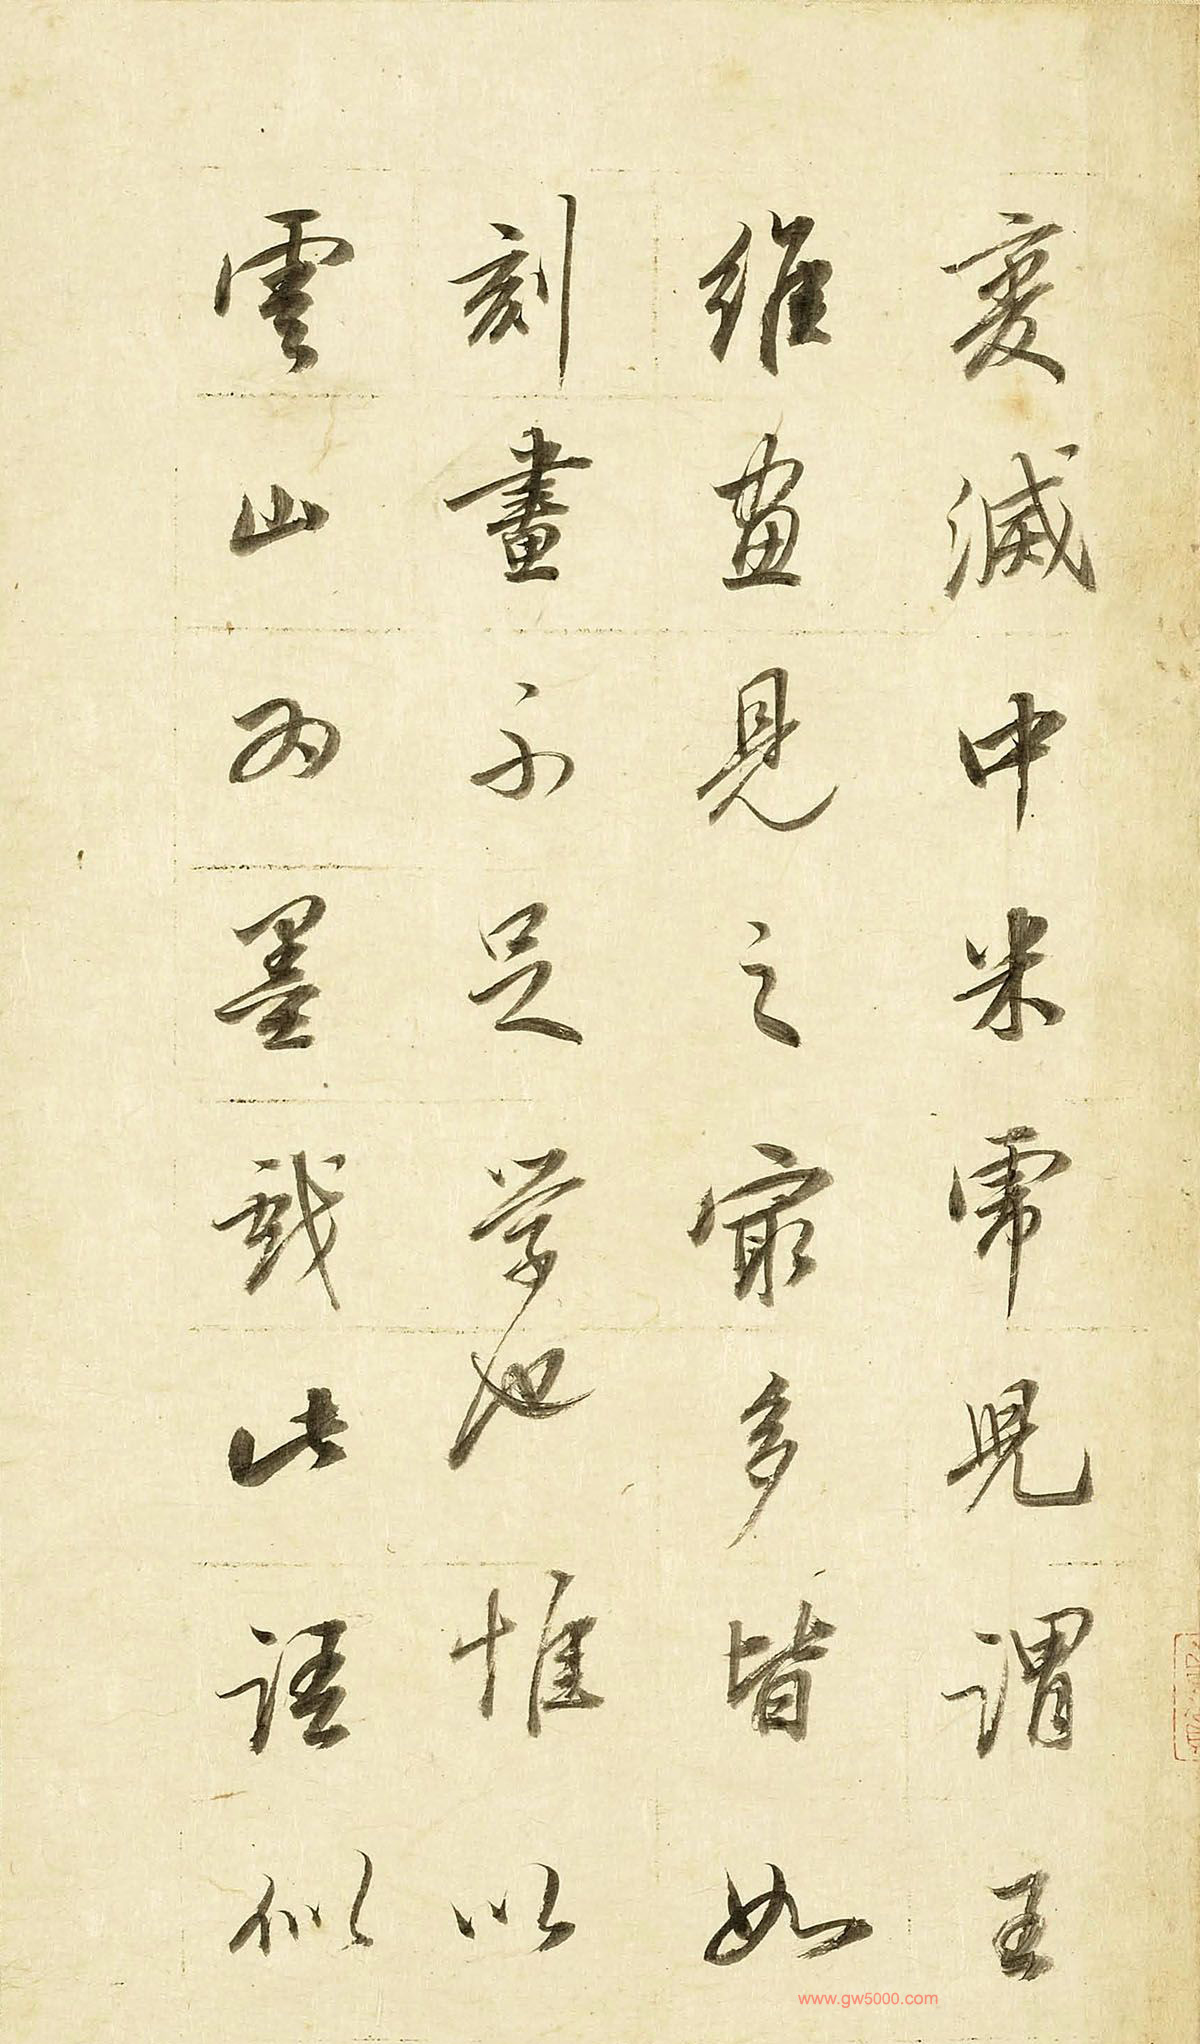 變滅中米帚見謂王
維畫見之最多皆如
刻畫不足學也惟以
雲山為墨戲此語似
www.gw5000.com